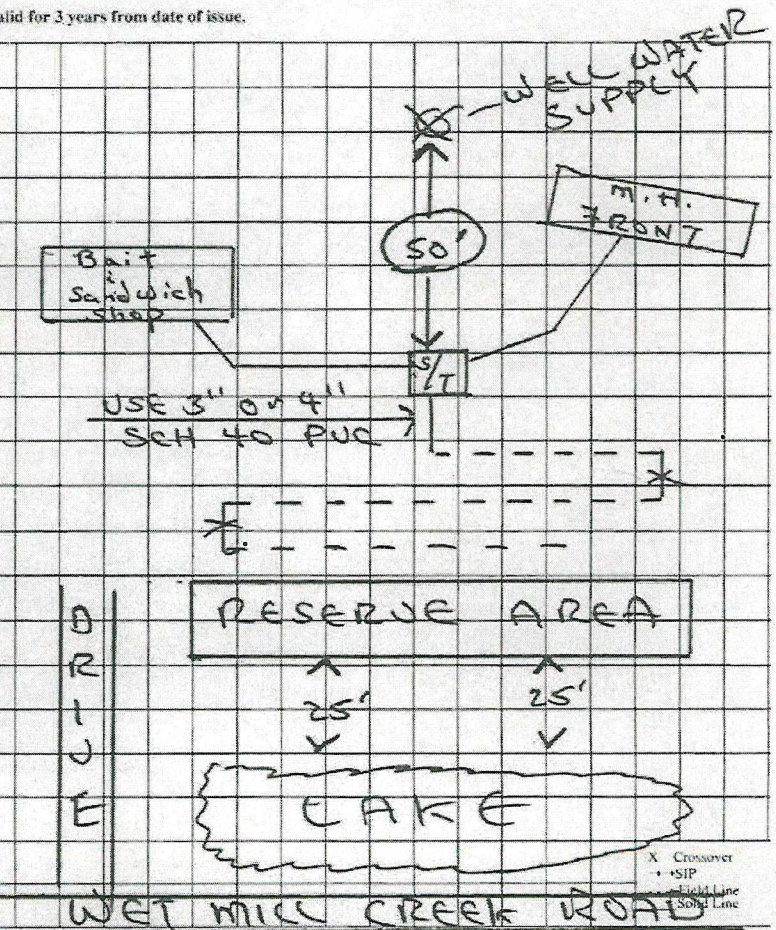 alid for 3 years from date of issue.
WELL WATER
SUPPLY
M.H.
FRONT
50'
Bait
&
Sandwich
Shop
S/T
USE 3" or 4"
SCH 40 PVC
RESERVE AREA
DRIVE
25' 25'
LAKE
X Crossover
SIP
Field Line
Solid Line
WET MILL CREEK ROAD